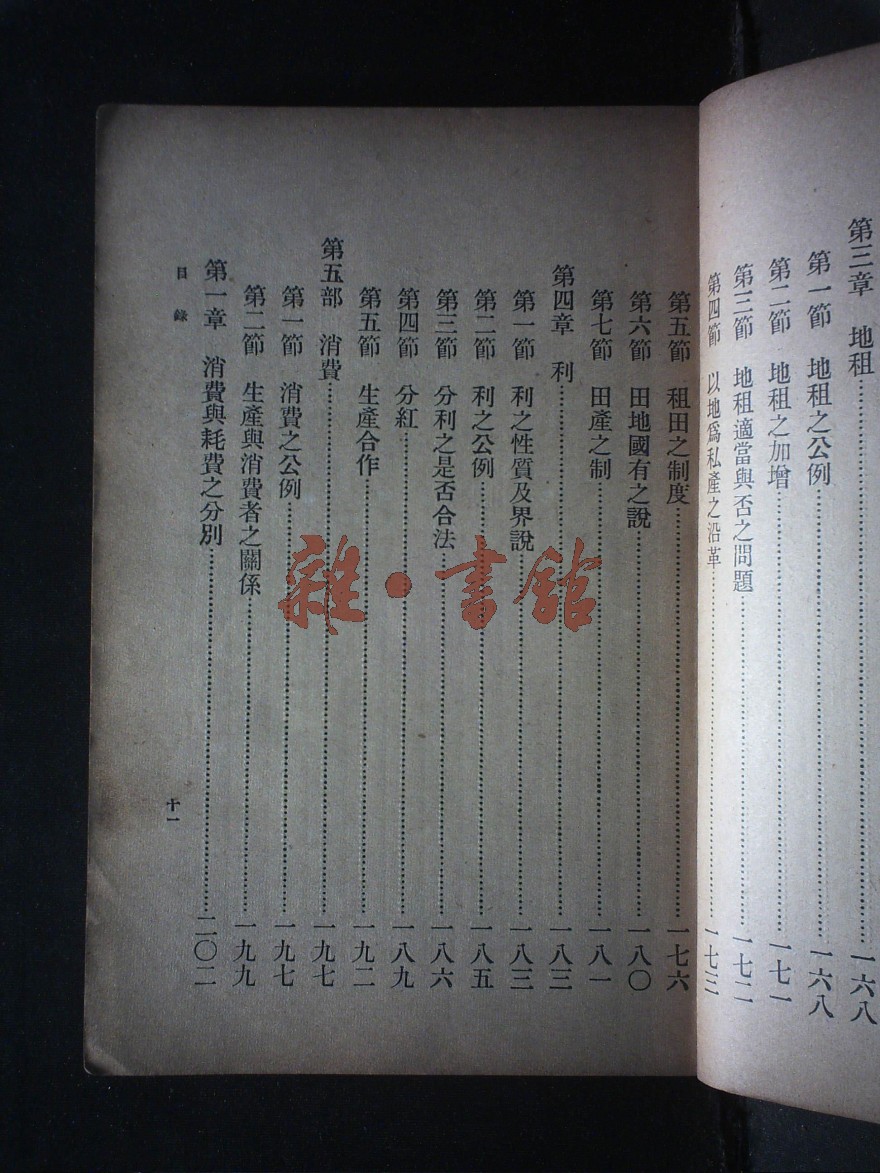 第三章　地租…………一六八
第一節　地租之公例…………一六八
第二節　地租之加增…………一七一
第三節　地租適當與否之問題…………一七二
第四節　以地爲私產之沿革…………一七三
第五節　租田之制度…………一七六
第六節　田地國有之說…………一八〇
第七節　田產之制…………一八一
第四章　利…………一八三
第一節　利之性質及界說…………一八三
第二節　利之公例…………一八五
第三節　分利之是否合法…………一八六
第四節　分紅…………一八九
第五節　生產合作…………一九二
第五部　消費…………一九七
第一節　消費之公例…………一九七
第二節　生產與消費者之關係…………一九九
第一章　消費與耗費之分別…………二〇二
目錄
十一
雜·書館